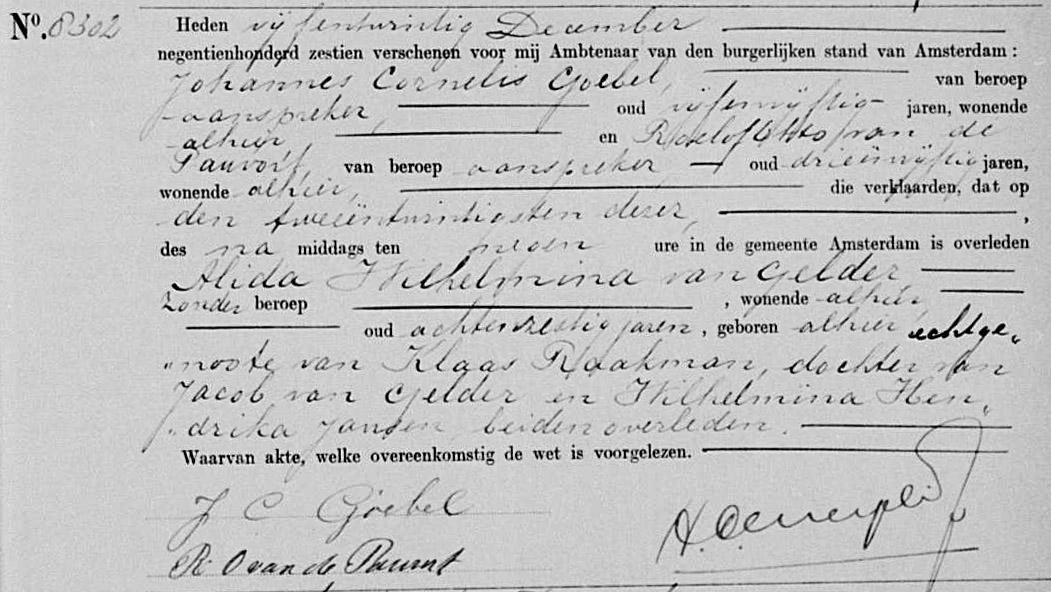 No. 8302
Heden vijfentwintig December
negentienhonderd zestien verschenen voor mij Ambtenaar van den burgerlijken stand van Amsterdam :
Johannes Cornelis Goebel, van beroep
aanspreker, oud vijfenvijftig jaren, wonende
alhier, en Roelof Otto van de
van beroep aanspreker, oud drieënvijftig jaren,
wonende alhier, die verklaarden, dat op
den tweeëntwintigsten dezer, ,
des na middags ten negen ure in de gemeente Amsterdam is overleden
Alida Wilhelmina van Gelder
zonder beroep , wonende alhier,
oud achtenzestig jaren, geboren alhier, echtge„
„noote van Klaas Raakman, dochter van
Jacob van Gelder en Wilhelmina Hen„
„drika Jansen, beiden overleden.
Waarvan akte, welke overeenkomstig de wet is voorgelezen.
J C Goebel
R. O van de